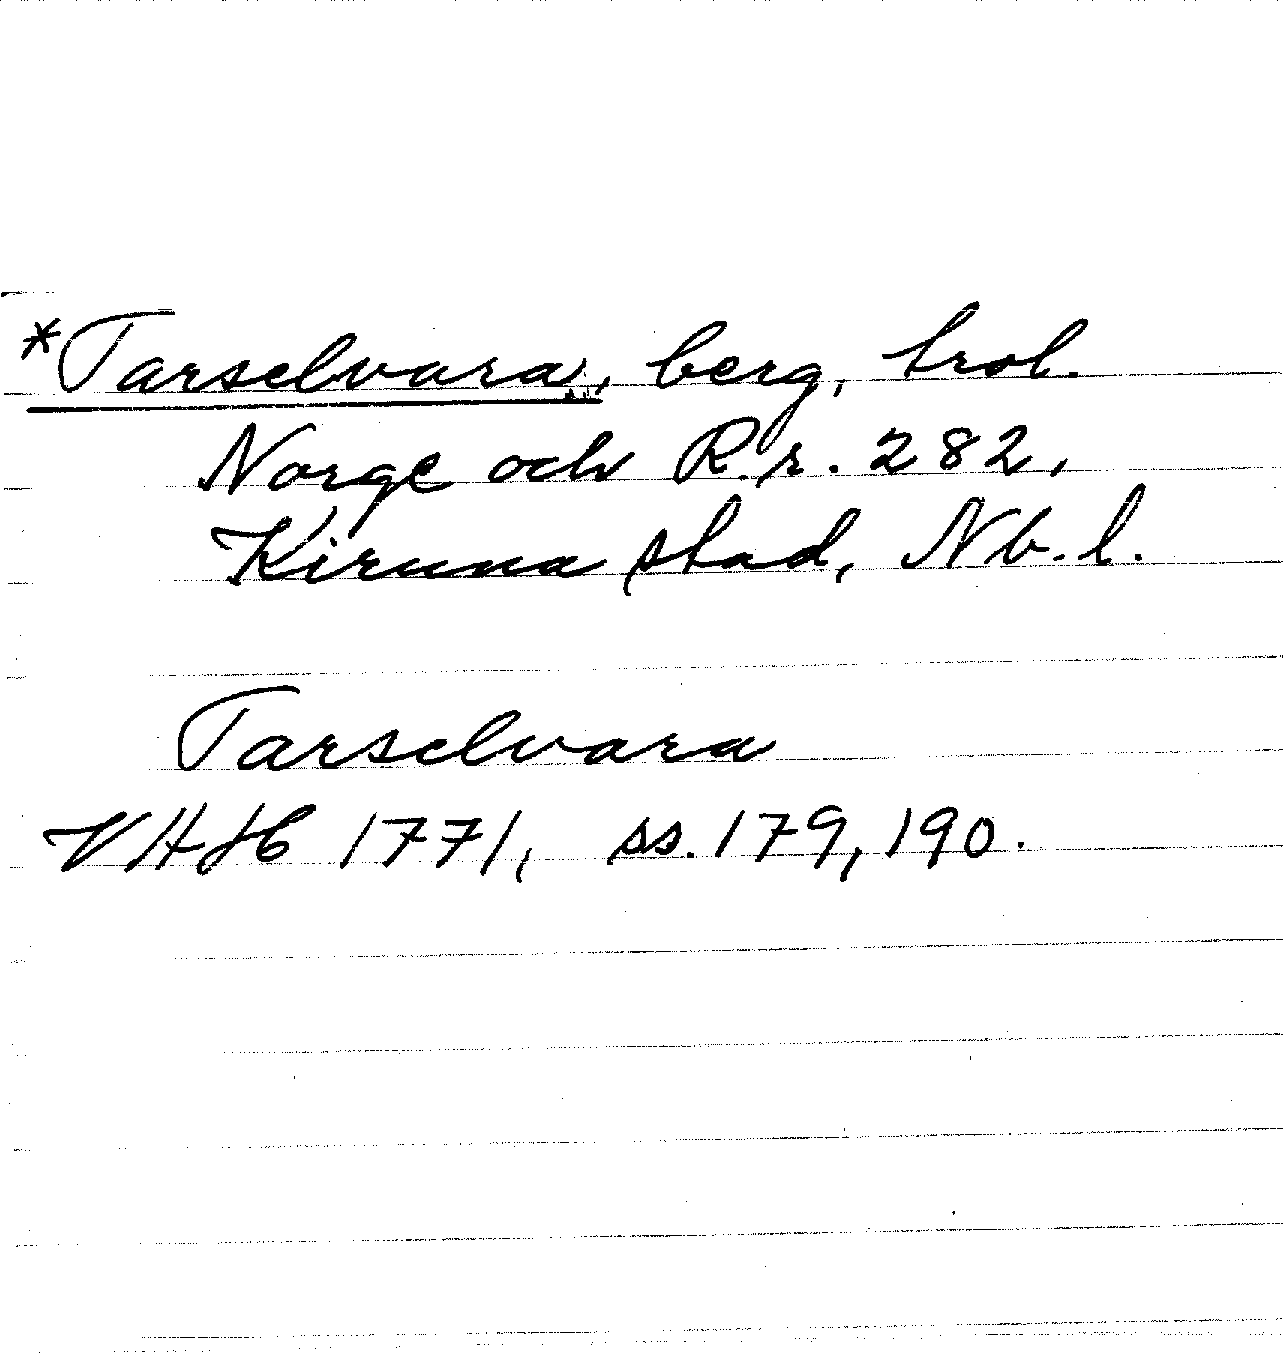 *Tarselvara, berg, trol.
Norge och R.r. 282,
Kiruna stad, Nb. l.
Tarselvara
VHHb 1771, ss. 179, 190.